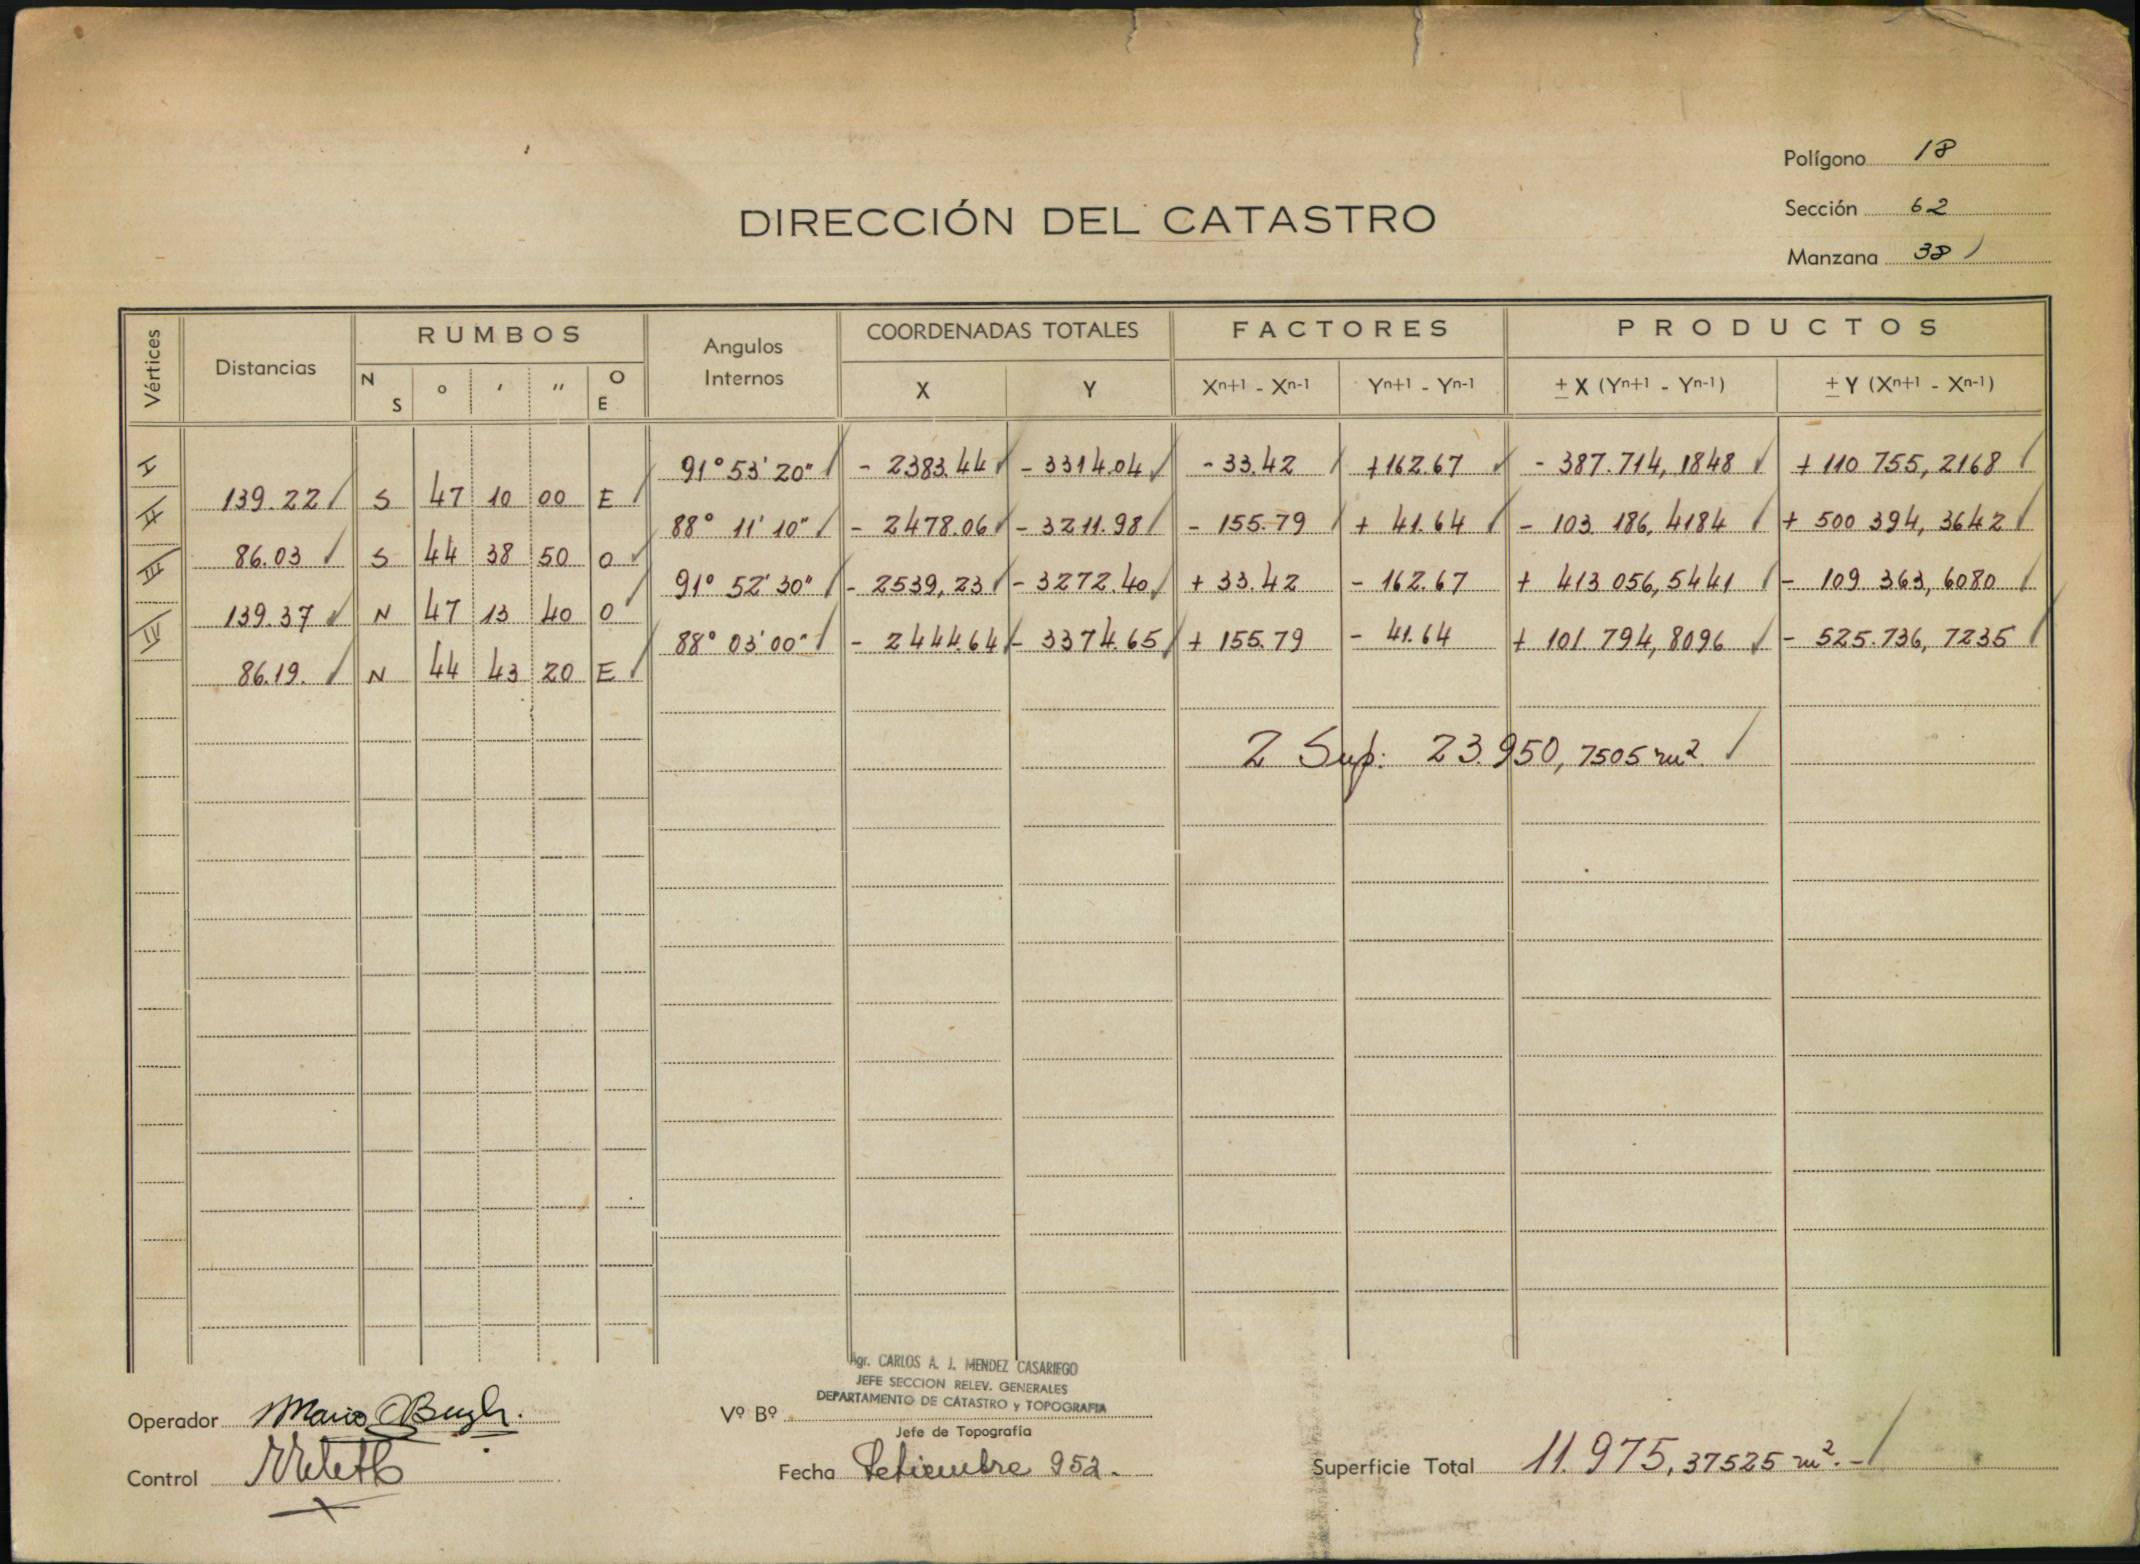 Polígono 18
Sección 62
Manzana 38
DIRECCIÓN DEL CATASTRO
Vértices Distancias RUMBOS Angulos Internos COORDENADAS TOTALES FACTORES PRODUCTOS
N S ° ' '' O E X Y Xn+1 - Xn-1 Yn+1 - Yn-1 ± X (Yn+1 - Yn-1) ± Y (Xn+1 - Xn-1)
I 91° 53' 20" - 2383.44 - 3314.04 - 33.42 + 162.67 - 387.714, 1848 + 110 755, 2168
139.22 S 47 10 00 E
II 88° 11' 10" - 2478.06 - 3211.98 - 155.79 + 41.64 - 103 186, 4184 + 500 394, 3642
86.03 S 44 38 50 O
III 91° 52' 30" - 2539,23 - 3272.40 + 33.42 - 162.67 + 413 056,5441 - 109 363, 6080
139.37 N 47 13 40 O
IV 88° 03' 00" - 2444.64 - 3374.65 + 155.79 - 41.64 + 101.794,8096 - 525.736, 7235
86.19. N 44 43 20 E
2 Sup: 23.950, 7505 m².
Agr. CARLOS A. J. MENDEZ CASARIEGO
JEFE SECCION RELEV. GENERALES
DEPARTAMENTO DE CATASTRO y TOPOGRAFIA
Operador Mario
Vº Bº
Jefe de Topografía
Control
Fecha Setiembre 952.
Superficie Total 11.975, 37525 m².-